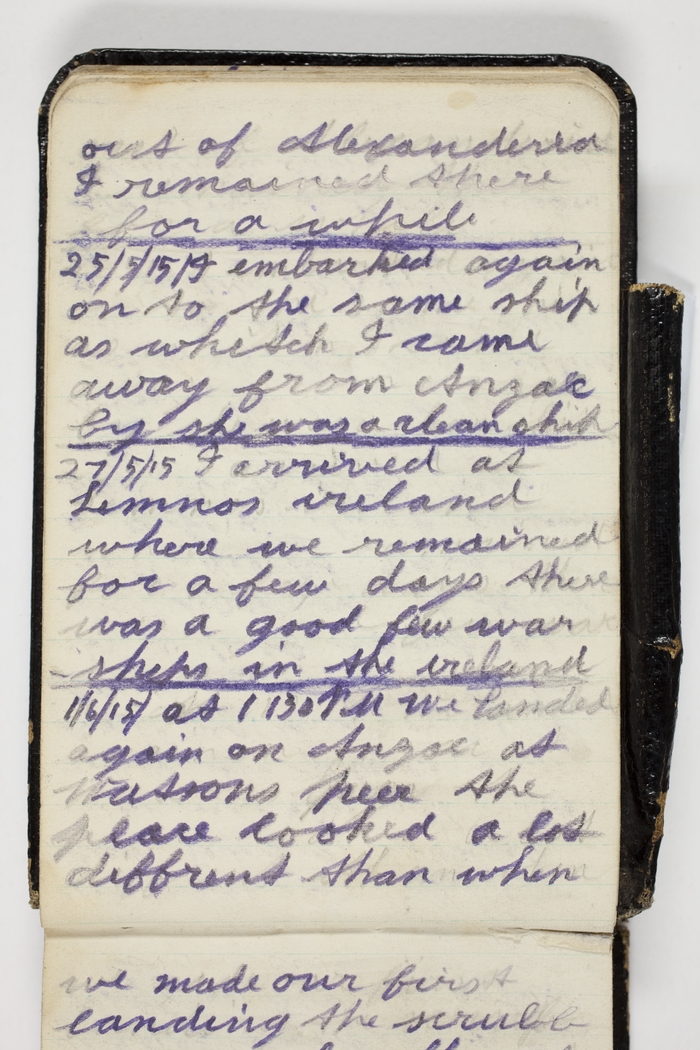 out of Alexanderia
I remained there
for a while
25/5/15 I embarked again
on to the same ship
as whitch I came
away from Anzac
by she was a clean ship
27/5/15 I arrived at
Lemnos ireland
where we remained
for a few days there
was a good few war
ships in the ireland
1/6/15 at 1 130 P.M we landed
again on Anzac at
Watsons peer the
place looked a lot
diffrent than when
we made our first
landing the scrubb